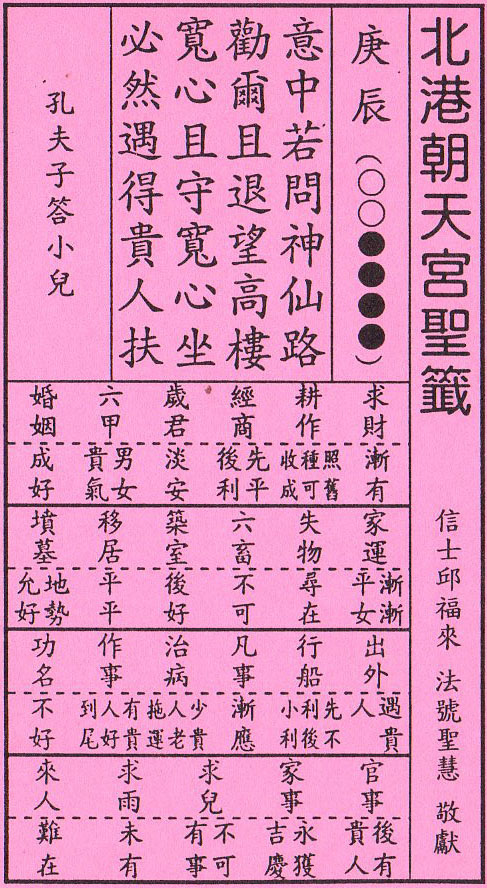 北港朝天宮聖籤
信士邱福來 法號聖慧 敬獻
庚辰(○○●●●●)
意中若問神仙路
勸爾且退望高樓
寬心且守寬心坐
必然遇得貴人扶
孔夫子答小兒
求財
漸有
耕作
照舊
種可
收成
經商
先平
後利
歲君
淡安
六甲
男女
貴氣
婚姻
成好
家運
漸漸
平女
失物
尋在
六畜
不可
築室
後好
移居
平平
墳墓
地勢
允好
出外
遇貴
人
行船
先不
利後
小利
凡事
漸應
治病
少貴
人老
拖運
作事
有貴
人好
到尾
功名
不好
官事
後有
貴人
家事
永獲
吉慶
求兒
不可
有事
求雨
未有
來人
難在